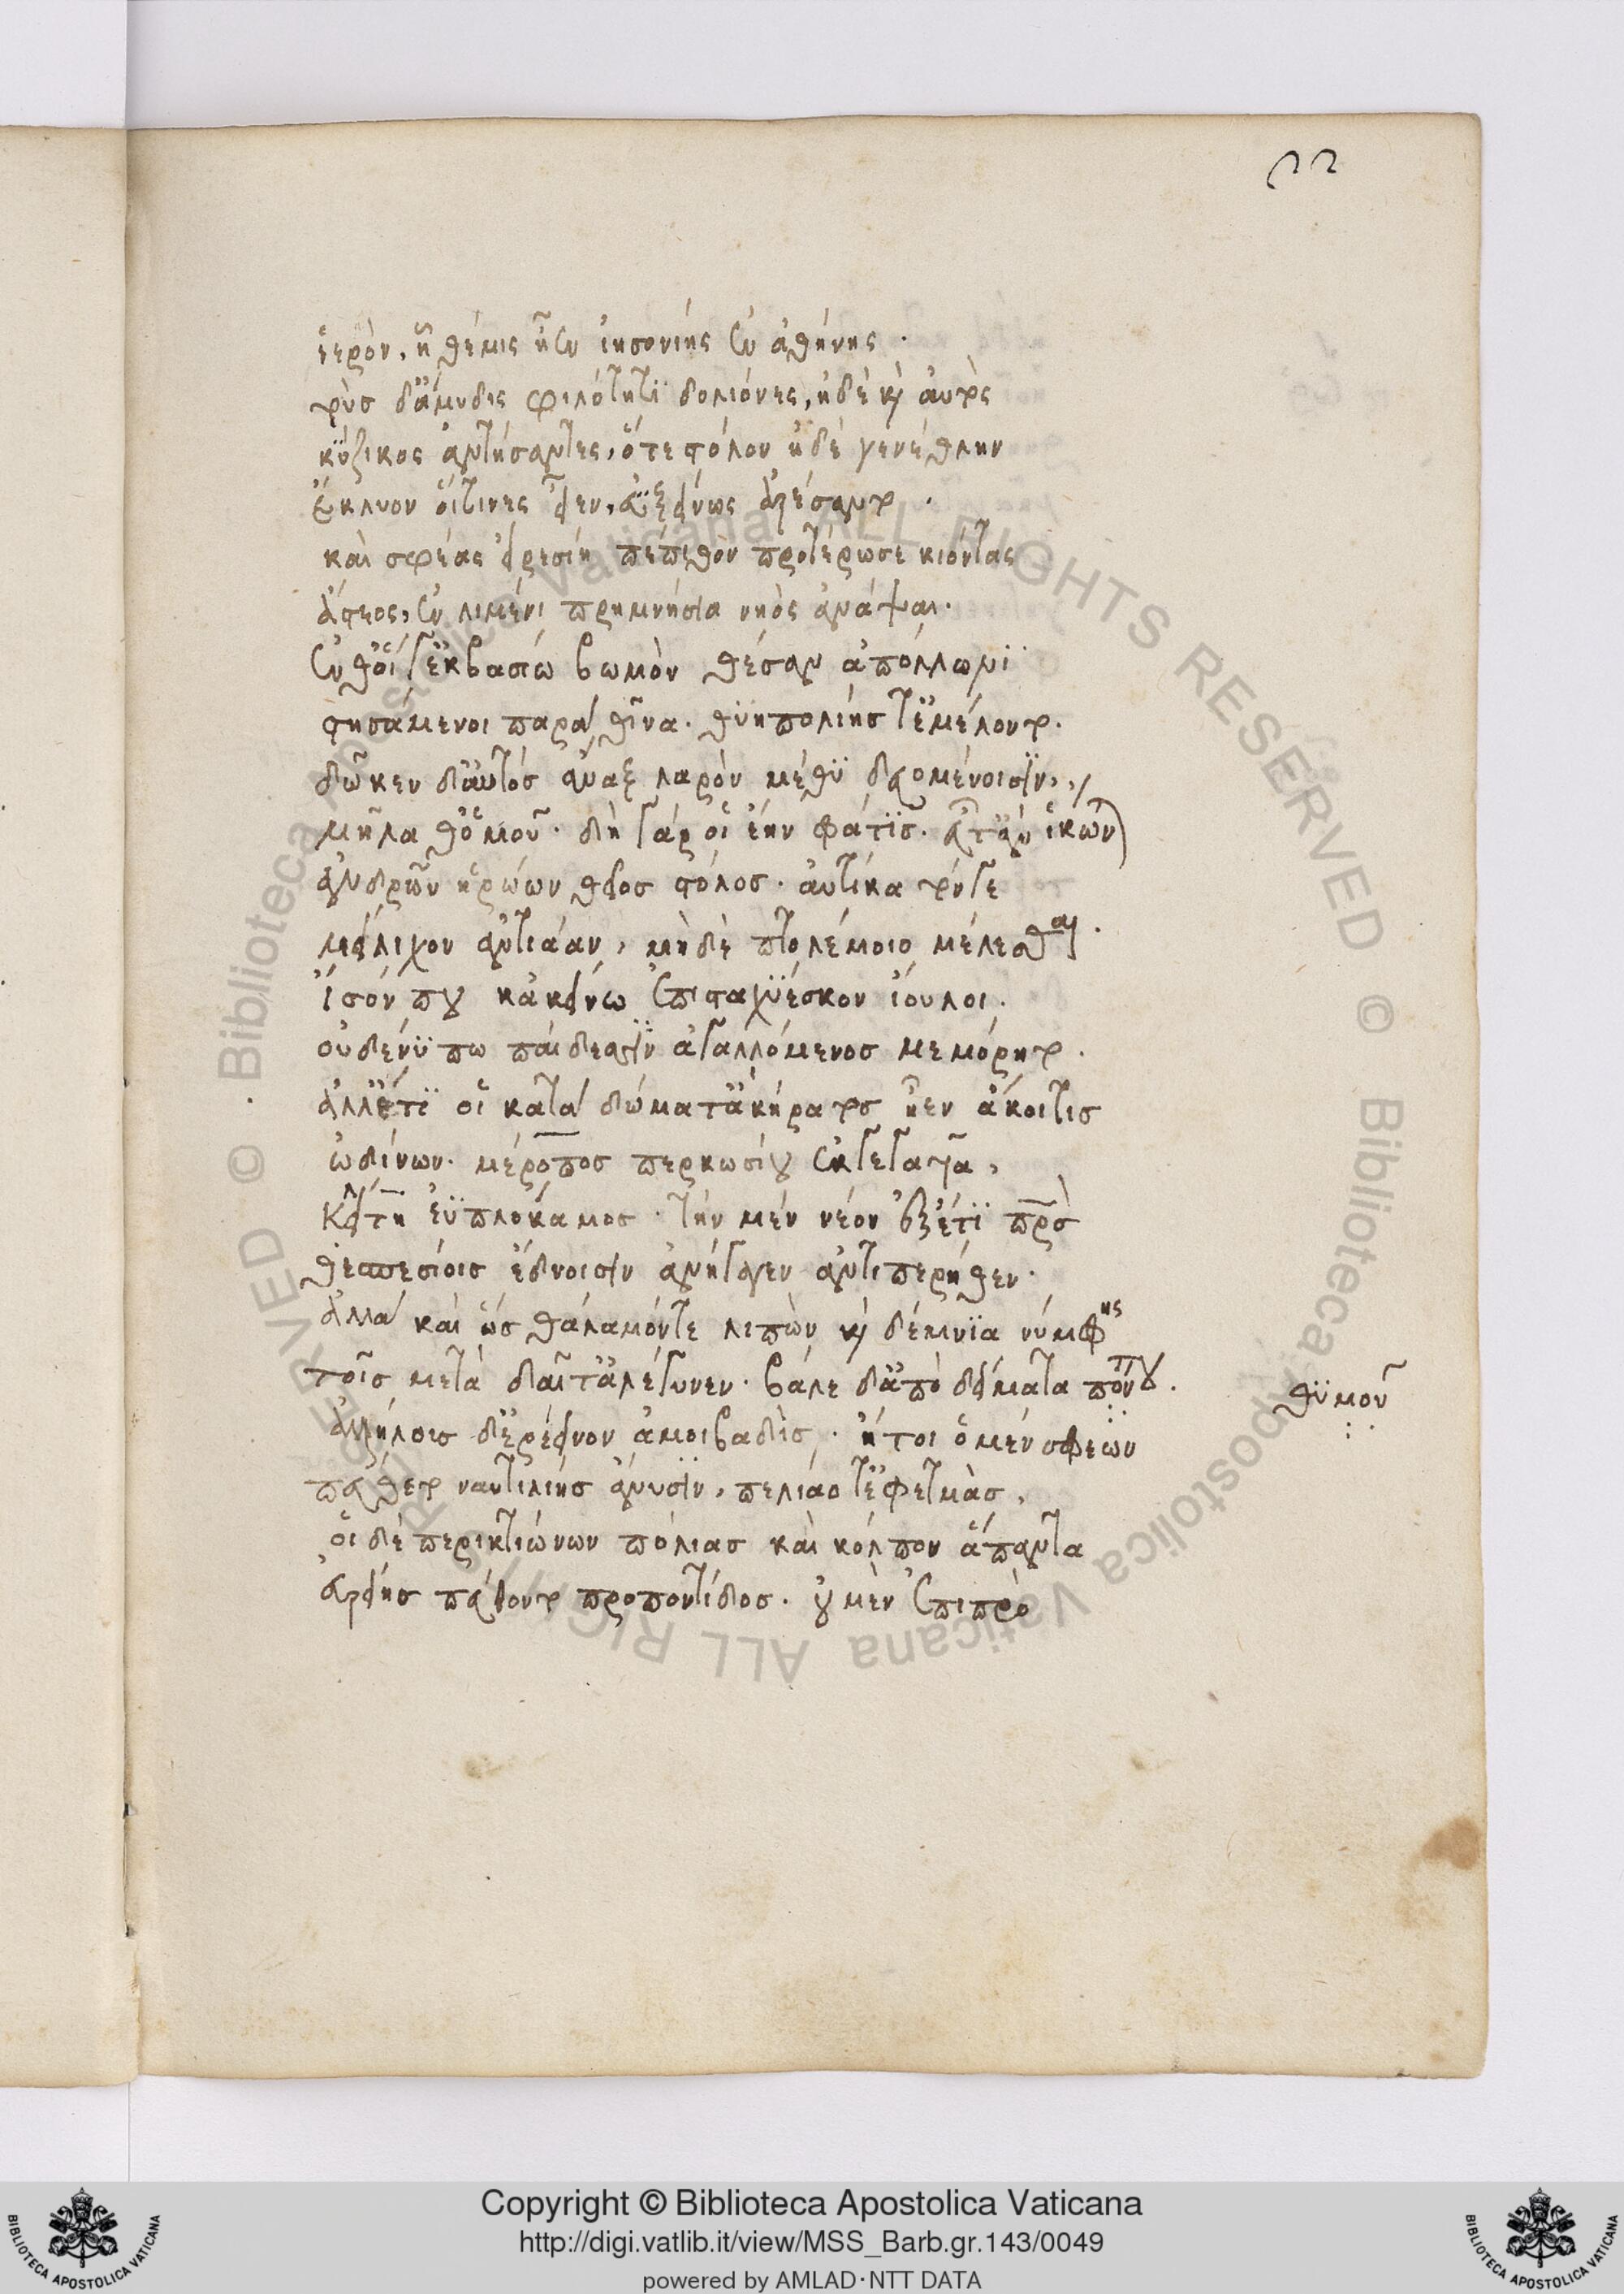 22
ἱερὸν, ἣ θέμις ἦεν ἰησονίης ἐν ἀθήνης.
τοὺσ δ' ἄμυδις φιλότητϊ δολιόνες, ἠδὲ καὶ αὐτὸς
κύζικος ἀντήσαντες, ὅτε στόλον ἠδὲ γενέθλην
ἔκλυον οἵτινες εἶεν, ἐϋξείνως ἀρέσαντο.
καὶ σφέας εἰρεσίη πέπιθον προτέρωσε κιόντας
ἄστεος, ἐν λιμένι πρημνήσια νηὸς ἀνάψαι.
ἔνθ' οἵ γ' ἐκβασίω βωμὸν θέσαν ἀπόλλωνϊ
στησάμενοι παρὰ θῖνα. θϋηπολίησ τ' ἐμέλοντο.
δῶκεν δ' αὐτόσ ἄναξ λαρὸν μέθϋ δευομένοισϊν,
μῆλα θ' ὁμοῦ. δὴ γάρ οἱ ἔην φάτϊσ. εὖτ' ἂν ἵκωνται
ἀνδρῶν ἡρώων θεῖοσ στόλοσ. αὐτίκα τόν γε
μείλιχον ἀντιάαν, μὴ δὲ πτολέμοιο μέλεσθαι.
ἶσόν που κἀκείνω ἐπισταχϋέσκον ἴουλοι.
οὐδέ νϋ πω παίδεσσϊν ἀγαλλόμενοσ μεμόρητο.
ἀλλ' ἔτϊ οἱ κατὰ δώματ' ἀκήρατοσ ἦεν ἄκοιτισ
ὠδίνων. μέροποσ περκωσίου ἐκγεγαυῖα,
κλείτη ἐϋπλόκαμοσ. τὴν μὲν νέον ἐξέτϊ πατρὸσ
θεσπεσίοισ ἕδνοισϊν ἀνήγαγεν ἀντιπέρηθεν.
ἀλλὰ καὶ ὧσ θάλαμόν τε λιπὼν καὶ δέμνϊα νύμφης
τοῖσ μετὰ δαῖτ' ἀλέγυνεν. βάλε δ' ἀπὸ δείματα πόντου.
θϋμοῦ
ἀλλήλοισ δ' ἐρέεινον ἀμοιβαδὶσ. ἤτοι ὁ μέν σφεων
πεύθετο ναυτιλίησ ἄνυσϊν, πελίαό τ' ἐφετμὰσ,
οἱ δὲ περικτιώνων πόλιασ καὶ κόλπον ἅπαντα
εὐρείησ πεύθοντο προποντίδοσ. οὐ μὲν ἐπιπρὸ
Copyright © Biblioteca Apostolica Vaticana
http://digi.vatlib.it/view/MSS_Barb.gr.143/0049
powered by AMLAD·NTT DATA